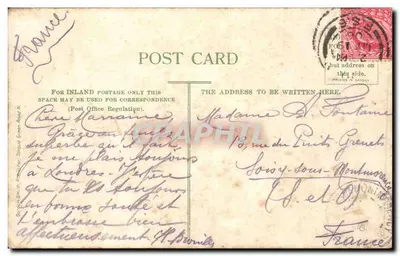 France
POST CARD
FOR INLAND POSTAGE ONLY THIS
SPACE MAY BE USED FOR CORRESPONDENCE
(Post Office Regulation).
THE ADDRESS TO BE WRITTEN HERE.
but address on
this side.
S.E
Chère Marraine
Grâce au temps
superbe qu'il fait
je me plais toujours
à Londres. J'espère
que tu es toujours
en bonne santé et
t'embrasse bien
affectueusement
Madame A. Fontaine
18, rue du Puits Grenets
Soisy-sous-Montmorency
(S. et O.)
France
CPARAMA